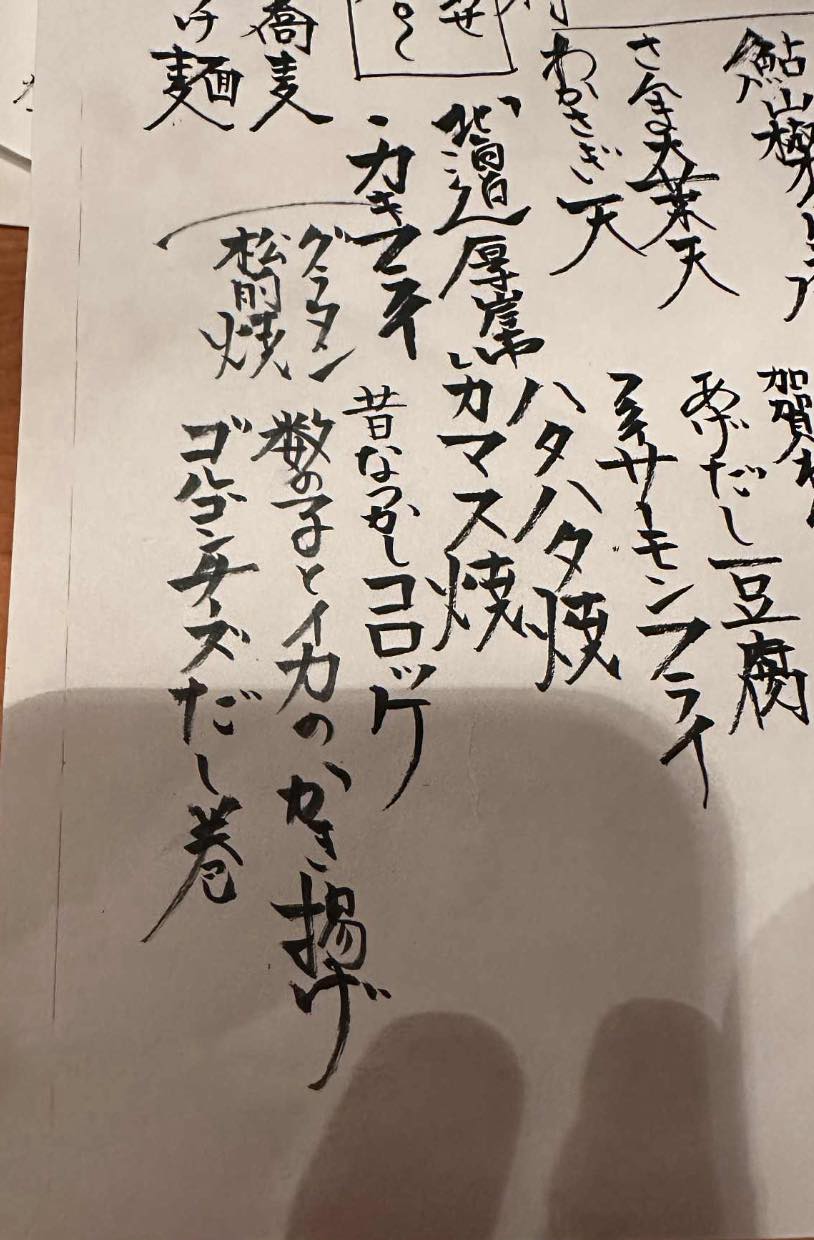 わかさぎ天
北海道厚岸
カキフライ
グラタン
松前焼
蕎麦
け麺
加賀
あげだし豆腐
サーモンフライ
ハタハタ焼
カマス焼
昔なつかしコロッケ
数の子とイカのかき揚げ
ゴルゴンザーラだし巻